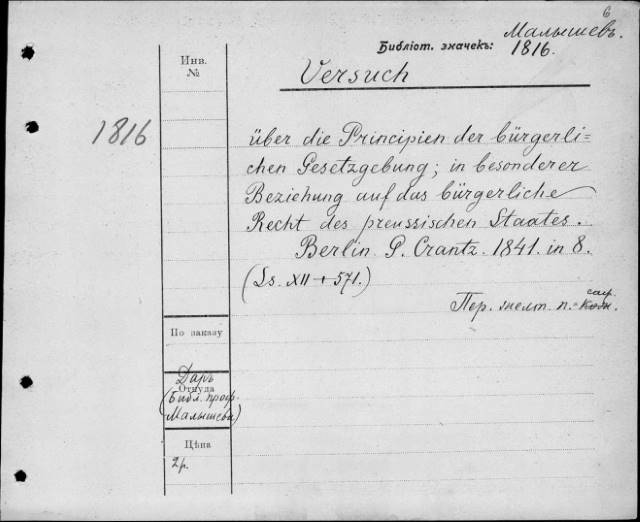 6
Малышевъ.
Библіот. значекъ: 1816.
Инв.
№
Versuch
1816
über die Principien der bürgerli=
chen Gesetzgebung; in besonderer
Beziehung auf das bürgerliche
Recht des preussischen Staates.
Berlin. P. Crantz. 1841. in 8.
(Ss. XII + 571.)
Пер. желт. п.-
саф.
По заказу
Даръ
Откуда
(Библ. проф.
Малышева)
Цѣна
2 р.